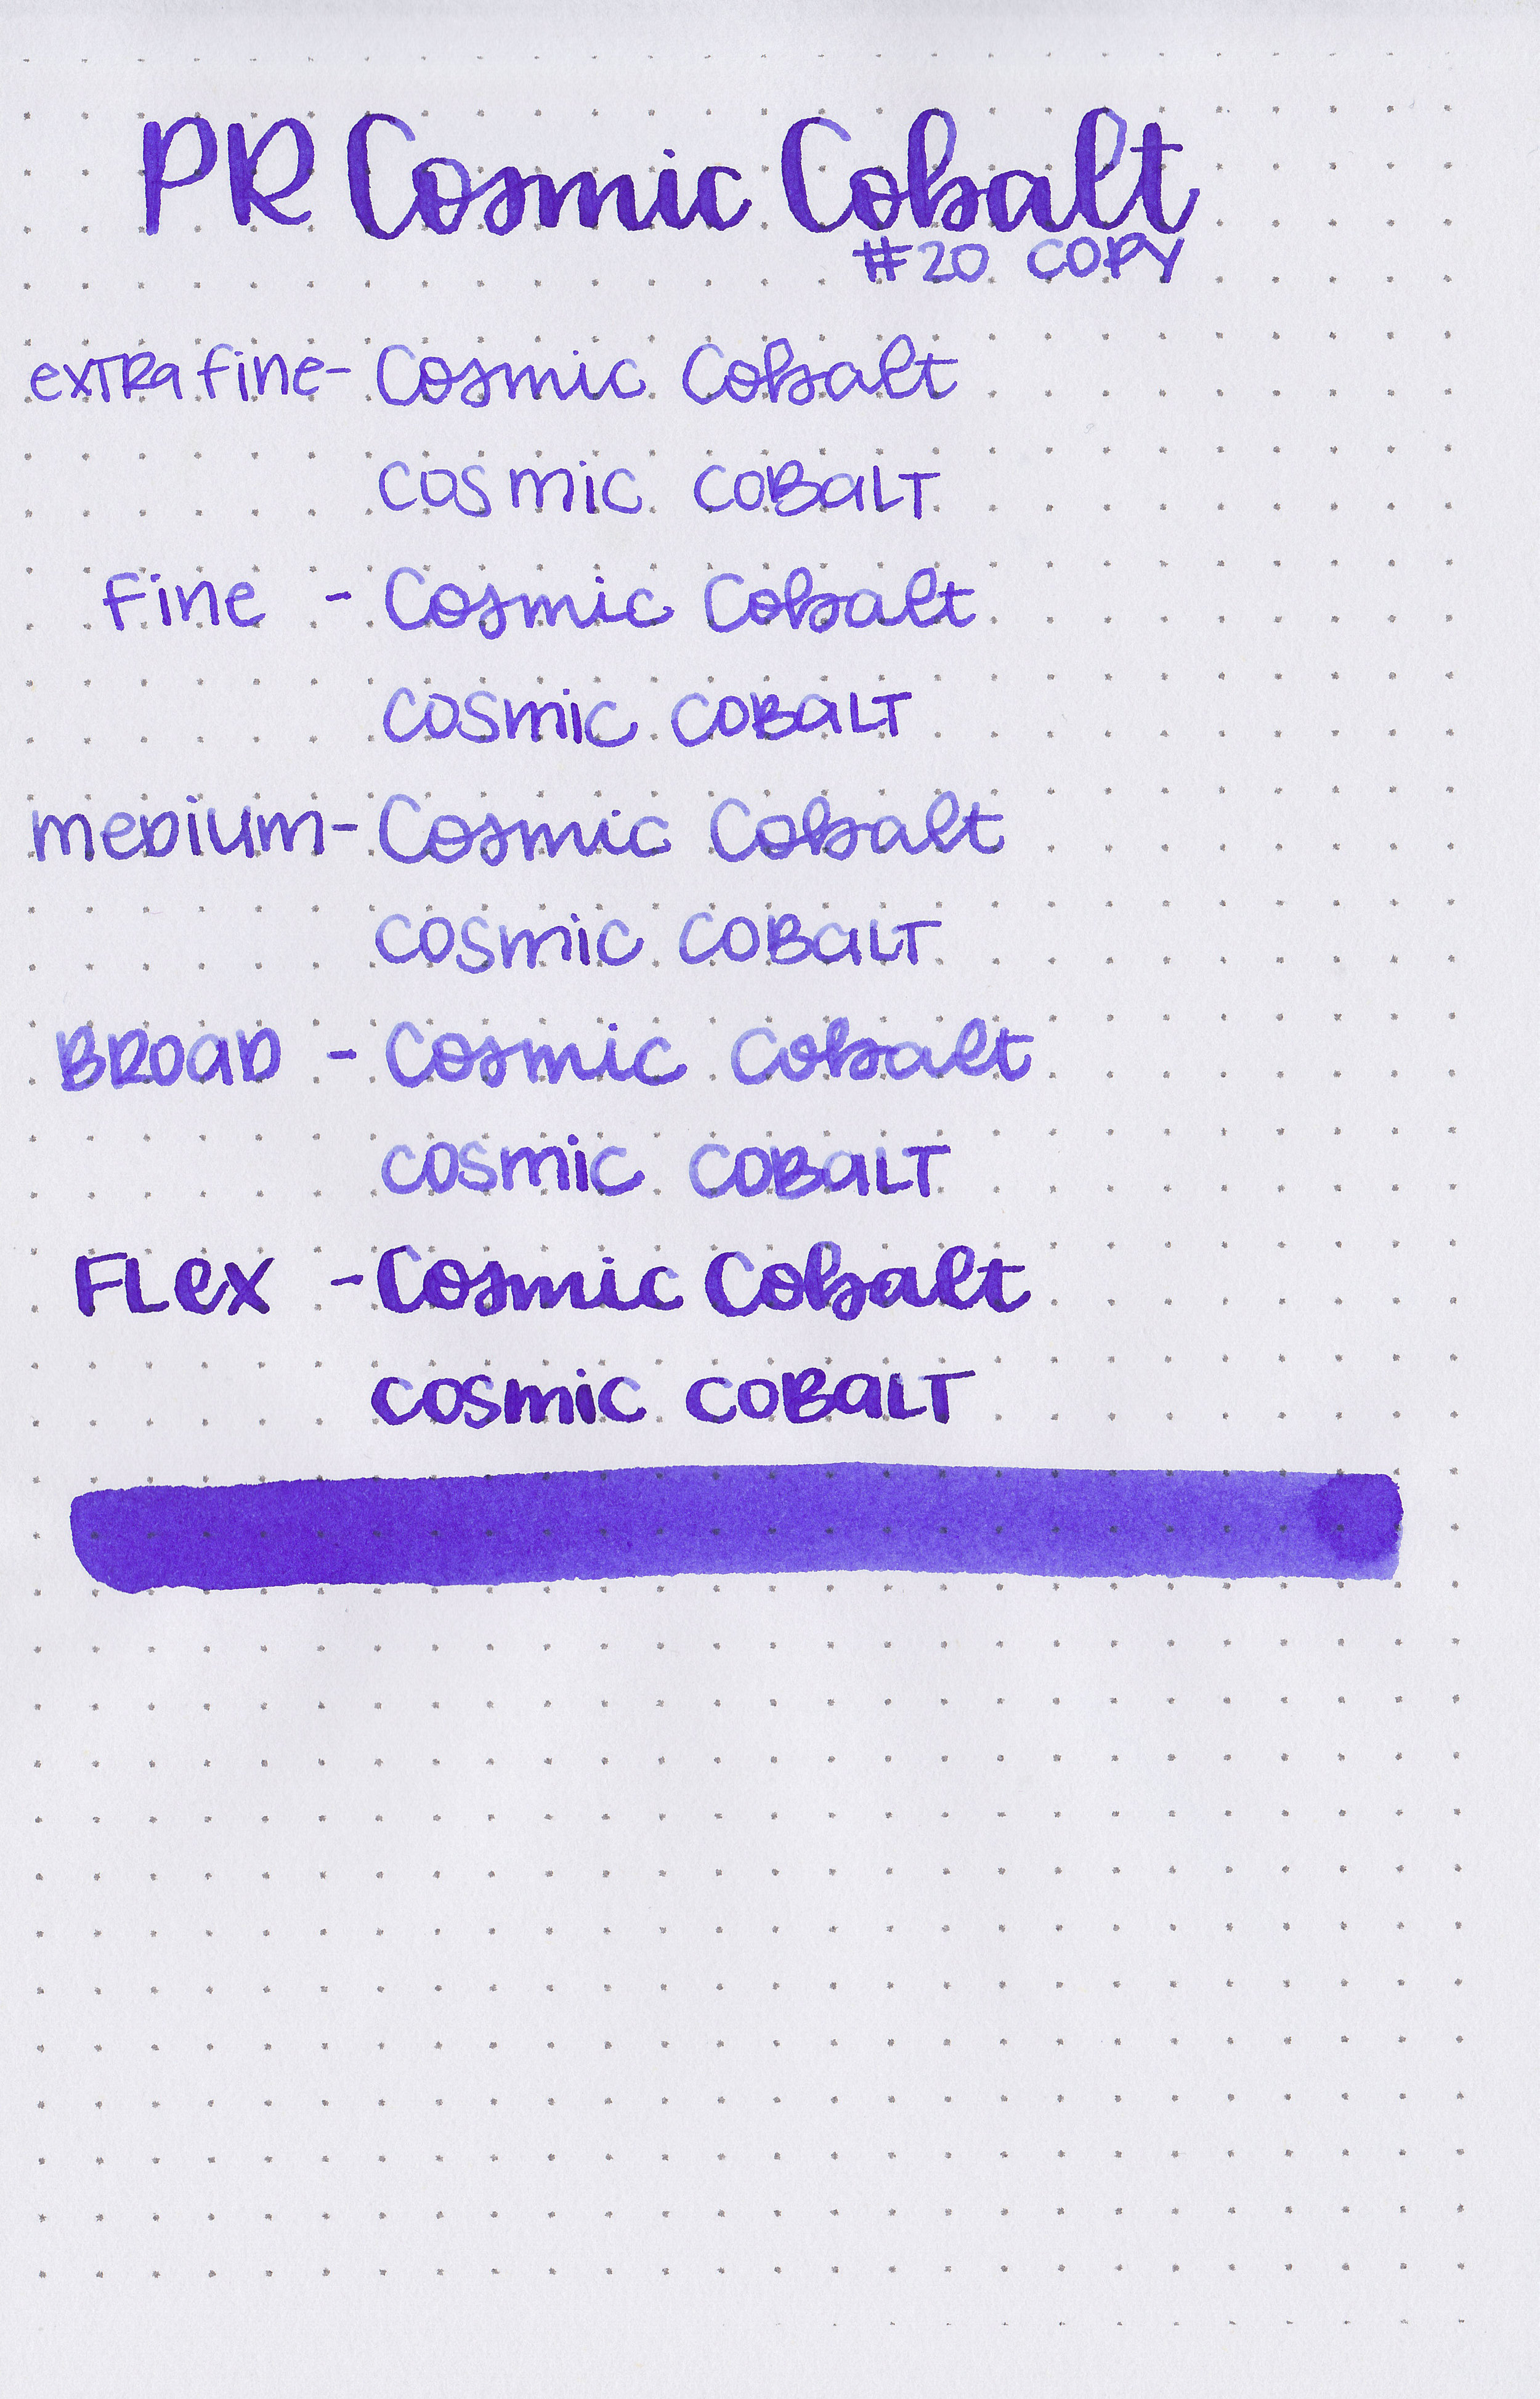 PR Cosmic Cobalt
#20 COPY
exTRa fine - Cosmic Cobalt
COSmic COBaLT
fine - Cosmic Cobalt
COSmic COBaLT
meDium - Cosmic Cobalt
COSmic COBaLT
BROaD - Cosmic Cobalt
COSmic COBaLT
FLex - Cosmic Cobalt
COSmic COBaLT